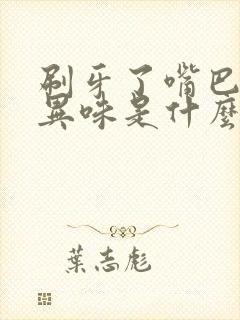 刷牙了嘴巴
異味是什麼
葉志彪